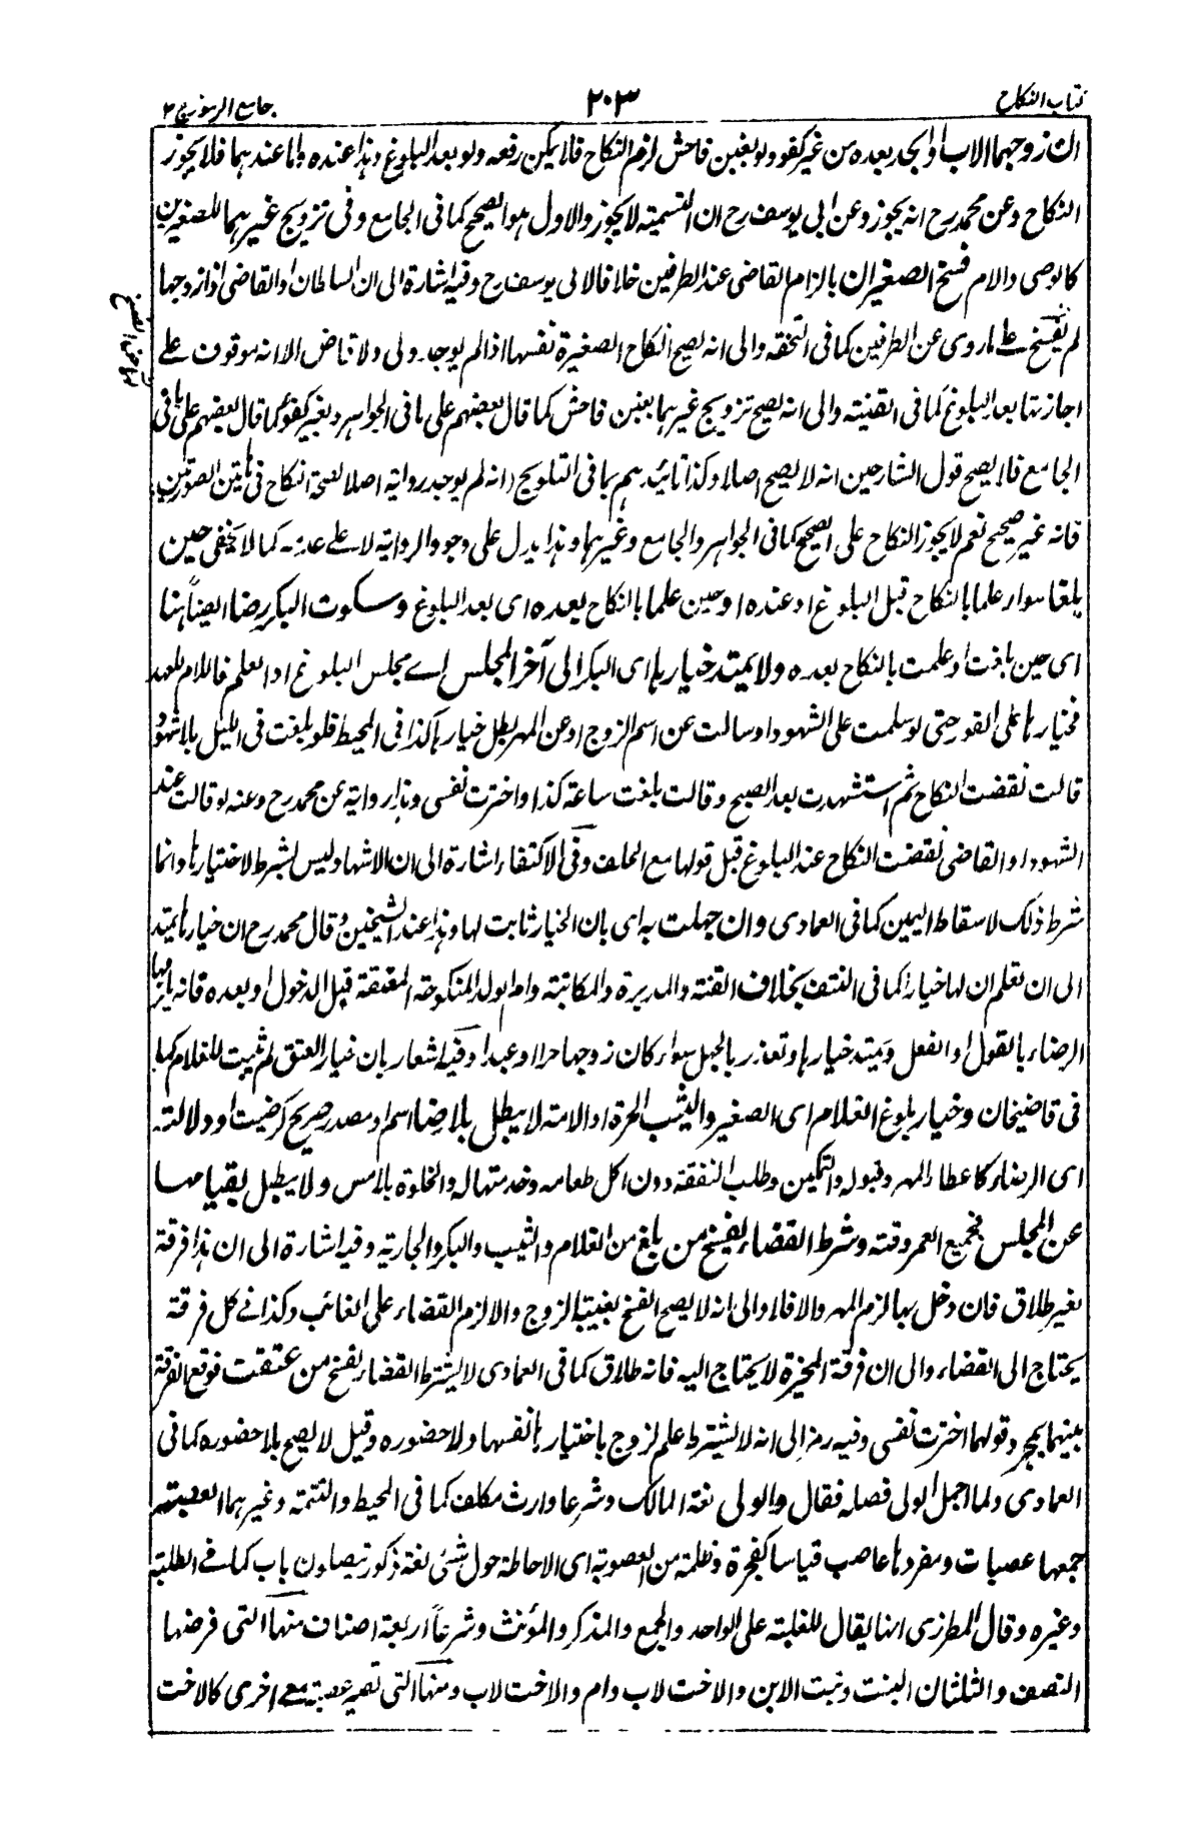 كتاب النكاح
٢٠٣
جامع الرموز ج ٢
ان زوجهما الاب او الجد بعده من غير كفو ولو بغبن فاحش لزم النكاح فلا يمكن رفعه ولو بعد البلوغ وهذا عنده واما عندهما فلا يجوز
النكاح وعن محمد رح انه يجوز وعن ابى يوسف رح ان التسمية لا يجوز والاول هو الصحيح كما فى الجامع وفى تزويج غيرهما للصغيرين
كالوصى والام فسخ الصغيران بالزام القاضى عند الطرفين خلافا لابى يوسف رح وفيه اشارة الى ان السلطان او القاضى اذا زوجها
لم يفسخ على ما روى عن الطرفين كما فى التحفة والى انه يصح انكاح الصغيرة نفسها اذا لم يوجد ولى ولا قاض الا انه موقوف على
اجازتها بعد البلوغ كما فى القنية والى انه يصح تزويج غيرهما بغبن فاحش كما قال بعضهم على ما فى الجواهر وبغير كفو كما قال بعضهم على ما فى
الجامع فلا يصح قول الشارحين انه لا يصح اصلا وكذا تائيدهم بما فى التلويح انه لم يوجد رواية اصلا لصحة النكاح فى هاتين الصورتين
فانه غير صحيح نعم لا يجوز النكاح على الصحيح كما فى الجواهر والجامع وغيرهما وهذا يدل على وجود الرواية لا على عدمه كما لا يخفى حين
بلغا سواء علما بالنكاح قبل البلوغ او عنده او حين علما بالنكاح بعده اى بعد البلوغ وسكوت البكر رضا ايضاً هنا
اى حين بلغت او علمت بالنكاح بعده ولا يمتد خيارها اى البكر الى آخر المجلس اے مجلس البلوغ او العلم فاللام للعهد
فخيارها على الفور حتى لو سلمت على الشهود او سالت عن اسم الزوج او عن المهر بطل خيارها كذا فى المحيط فلو بلغت فى الليل بلا شهود
قالت نقضت النكاح ثم استشهدت بعد الصبح وقالت بلغت ساعة كذا واخترت نفسى وهذا رواية عن محمد رح وعنه لو قالت عند
الشهود او القاضى نقضت النكاح عند البلوغ قبل قولها مع الحلف وفى الاكتفاء اشارة الى ان الاشهاد ليس بشرط لاختيارها وانما
شرط ذلك لاسقاط اليمين كما فى العمادى وان جهلت به اى بان الخيار ثابت لها وهذا عند الشيخين وقال محمد رح ان خيارها يمتد
الى ان تعلم ان لها خيارا كما فى النتف بخلاف القنة والمدبرة والمكاتبة وام الولد المنكوحة المعتقة قبل الدخول او بعده فانه
الرضاء بالقول او الفعل ويمتد خيارها وتعذر بالجهل سواء كان زوجها حرا او عبدا وفيه اشعار بان خيار العتق لم يثبت للغلام كما
فى قاضيخان وخيار بلوغ الغلام اى الصغير والثيب الحرة او الامة لا يبطل بلا رضا اسم او مصدر صريح كرضيت او دلالة
اى الرضاء كاعطاء المهر وقبوله والتمكين وطلب النفقة دون اكل طعامه وخدمتها له والخلوة بلا مس ولا يبطل بقيامهما
عن المجلس فجميع العمر وقته وشرط القضاء لفسخ من بلغ من الغلام والثيب والبكر والجارية وفيه اشارة الى ان هذا فرقة
بغير طلاق فان دخل بها لزم المهر والا فلا والى انه لا يصح الفسخ بغيبة الزوج والا لزم القضاء على الغائب وكذا فى كل فرقة
يحتاج الى القضاء والى ان فرقة المخيرة لا يحتاج اليه فانه طلاق كما فى العمادى لا يشترط القضاء لفسخ من عتقت فوقع الفرقة
بينهما بمجرد قولها اخترت نفسى وفيه رمز الى انه لا يشترط علم الزوج باختيارها نفسها ولا حضوره وقيل لا يصح بلا حضوره كما فى
العمادى ولما اجمل الولى فصله فقال والولى لغة المالك وشرعا وارث مكلف كما فى المحيط والتتمة وغيرهما العصبة
جمعها عصبات ومفردها عاصب قياسا كفجرة وظلمة من العصوبة اى الاحاطة حول شئ لغة ذكور يتصلون باب كما فى الطلبة
وغيره وقال المطرزى انها يقال للغلبة على الواحد والجمع والمذكر والمؤنث وشرعاً اربعة اصناف منها التى فرضها
النصف والثلثان البنت وبنت الابن والاخت لاب وام والاخت لاب ومنها التى تصير عصبة مع اخرى كالاخت